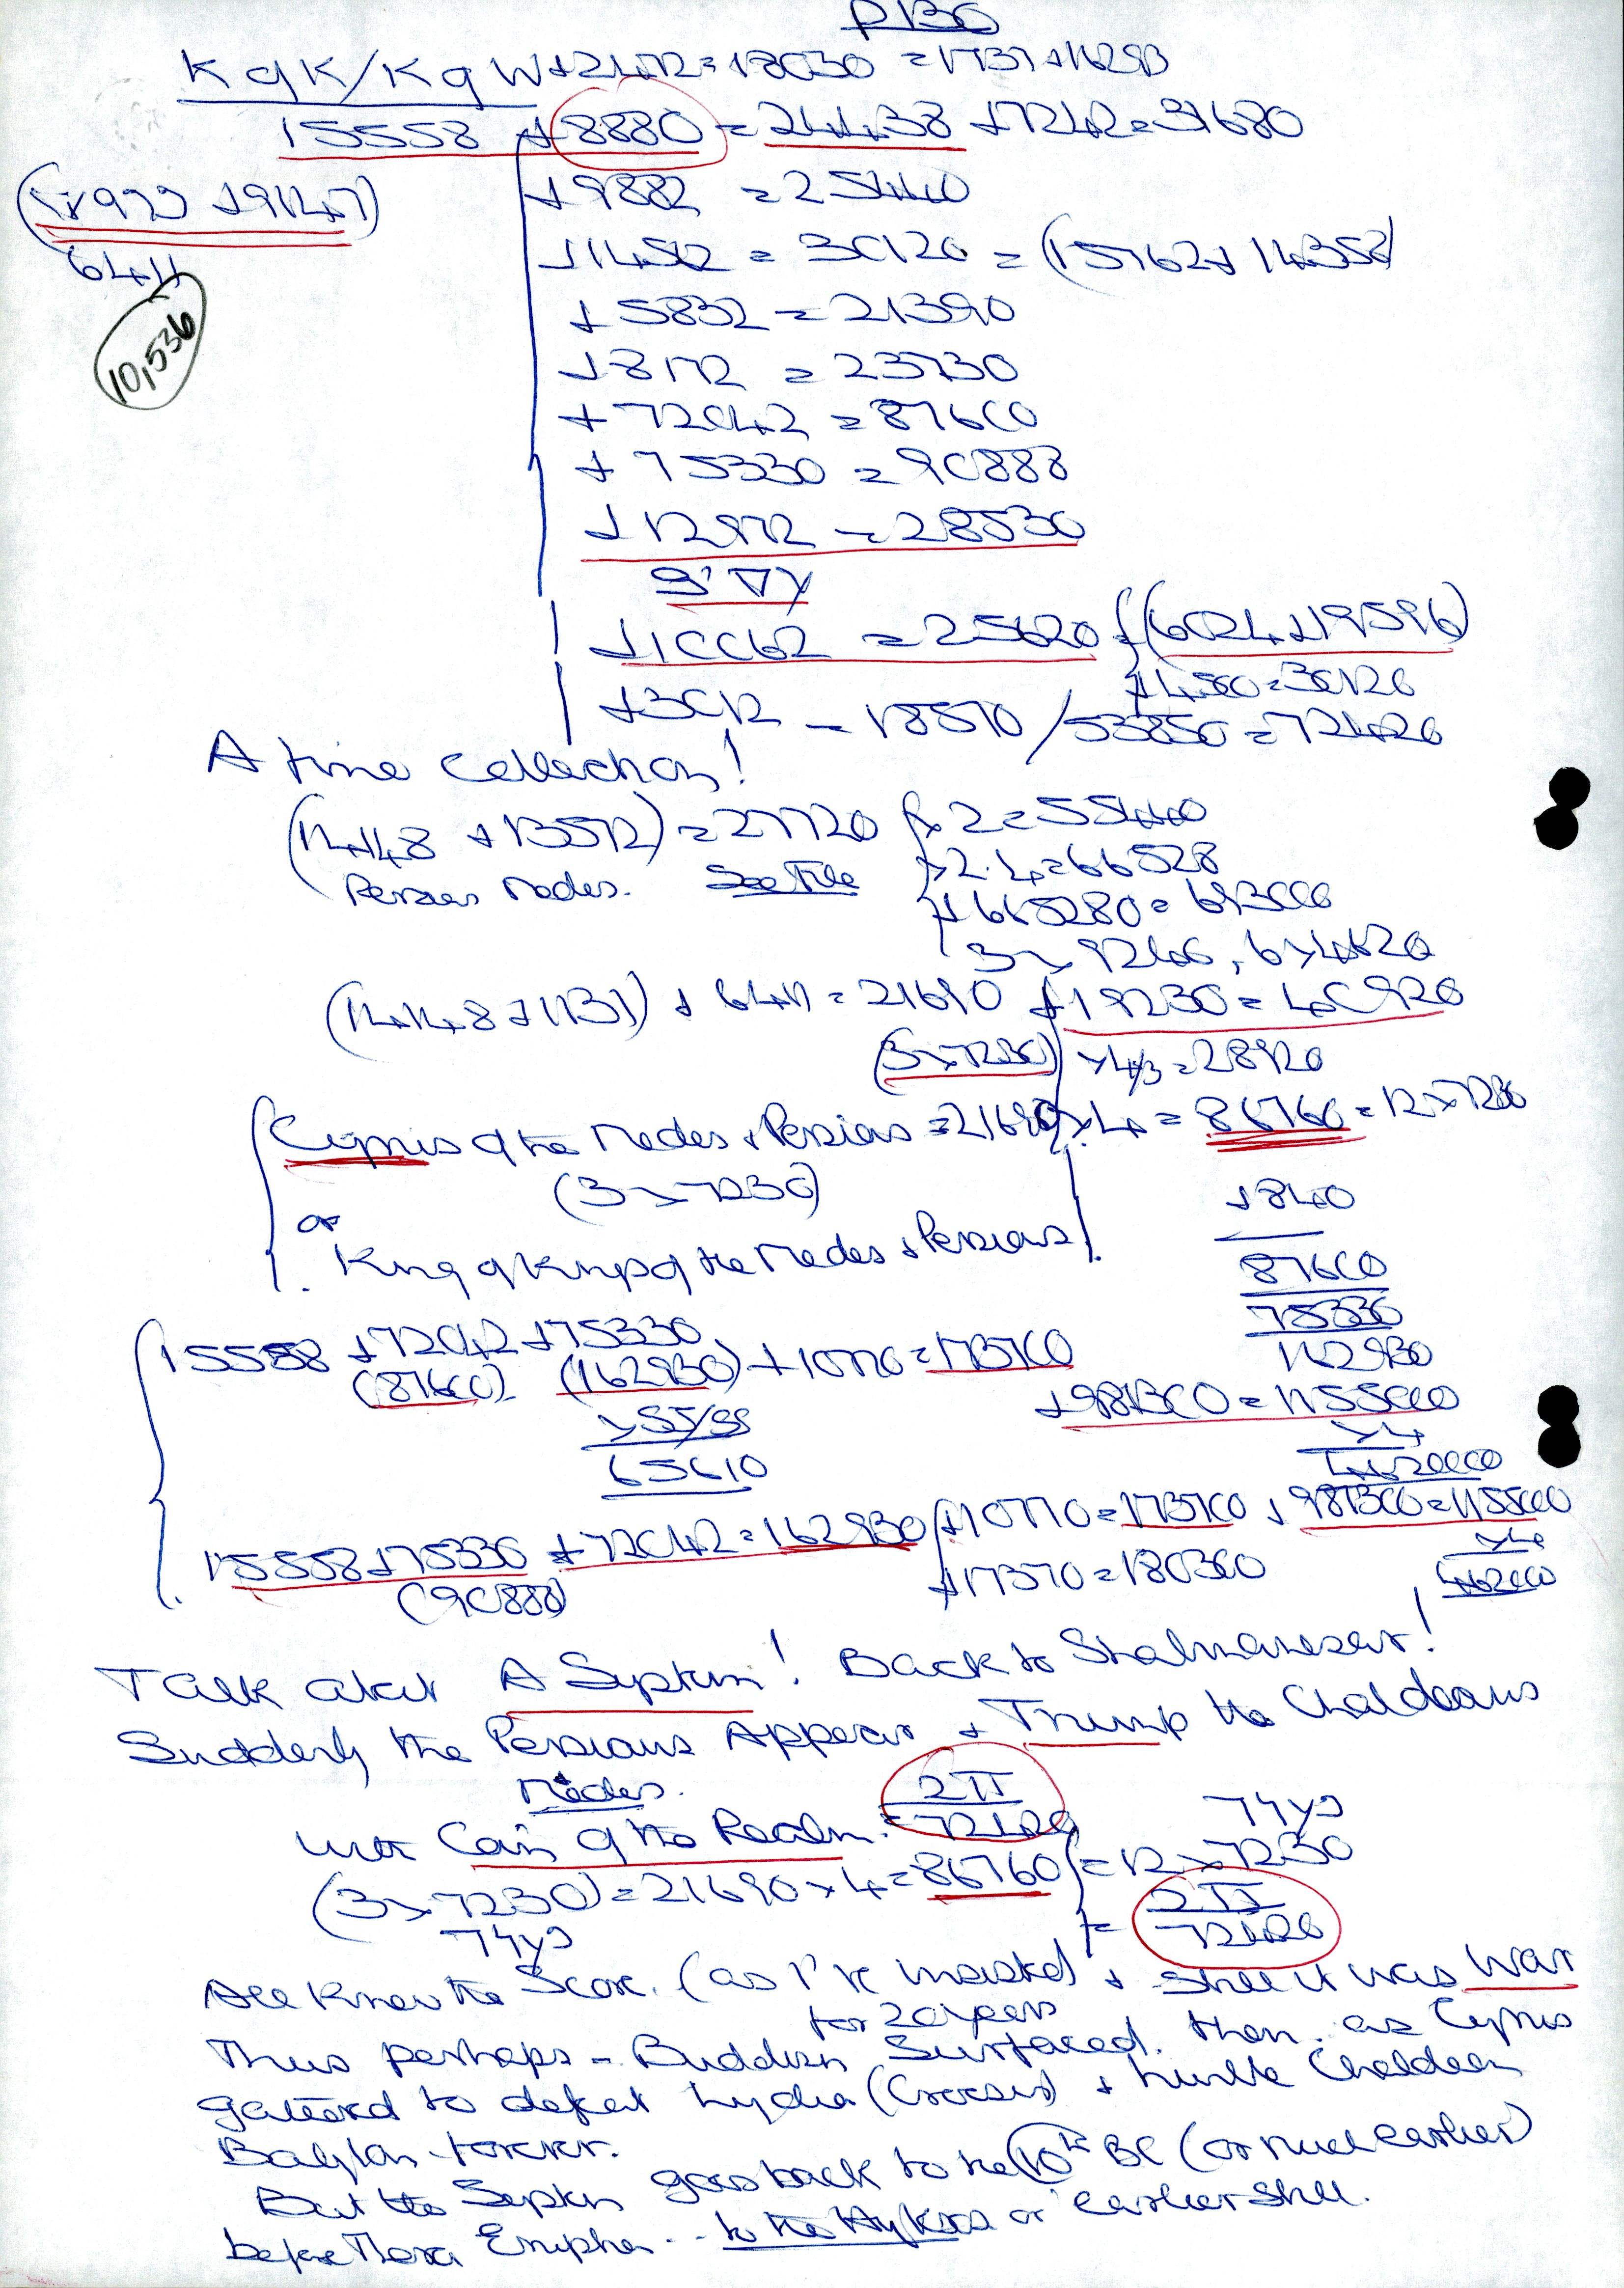 P130
KqK/KqW + 2472 = 18030 = 1737 + 16293
15558 + 8880 = 24438 + 7242 = 31680
+ 9882 = 25440
6411
+ 14562 = 30120 = (15762 + 14358)
10,536
+ 5832 = 21390
+ 8172 = 23730
+ 72042 = 87600
+ 75330 = 90888
+ 12972 = 28530
+ 10062 = 25620 + (6024 + 19596)
+ 4500 = 30120
+ 3012 = 18570 / 53850 = 72420
A fine Collection!
(14148 + 13572) = 27720 { x 2 = 55440
Persians Medes. See File
x 2.4 = 66528
+ 665280 = 693000
3 x 9240, 6 x 4620
(14148 + 1131) + 6411 = 21690 + 19230 = 40920
(3 x 7230) x 4/3 = 28920
Cyrus of the Medes & Persians = 21690 x 4 = 86760 = 12 x 7230
(3 x 7230)
+ 840
or
King of Kings of the Medes & Persians
87600
75330
162930
15558 + 72042 + 75330
(87600) (162930) + 10770 = 173700
+ 981300 = 1155000
x 4
4620000
65610
15558 + 75330 + 72042 = 162930 + 10770 = 173700 + 981300 = 1155000
x 4
(90888)
+ 17370 = 180300
4620000
Talk about A System! Back to Shalmaneser!
Suddenly the Persians Appear & Trump the Chaldeans
Medes.
with Coin of the Realm. = 2π/72420
74yo
(3 x 7230) = 21690 x 4 = 86760 = 12 x 7230
74yo
= 2π/72420
All Knew the Score. (as I've marked) & still it was War
for 20 years
Thus perhaps - Buddism Surfaced. then. as Cyrus
gathered to defeat Lydia (Croesus) & humble Chaldean
Babylon forever.
But the System goes back to the 10th BC (or much earlier)
before Thera Eruption. - to the Hyksos or earlier still.